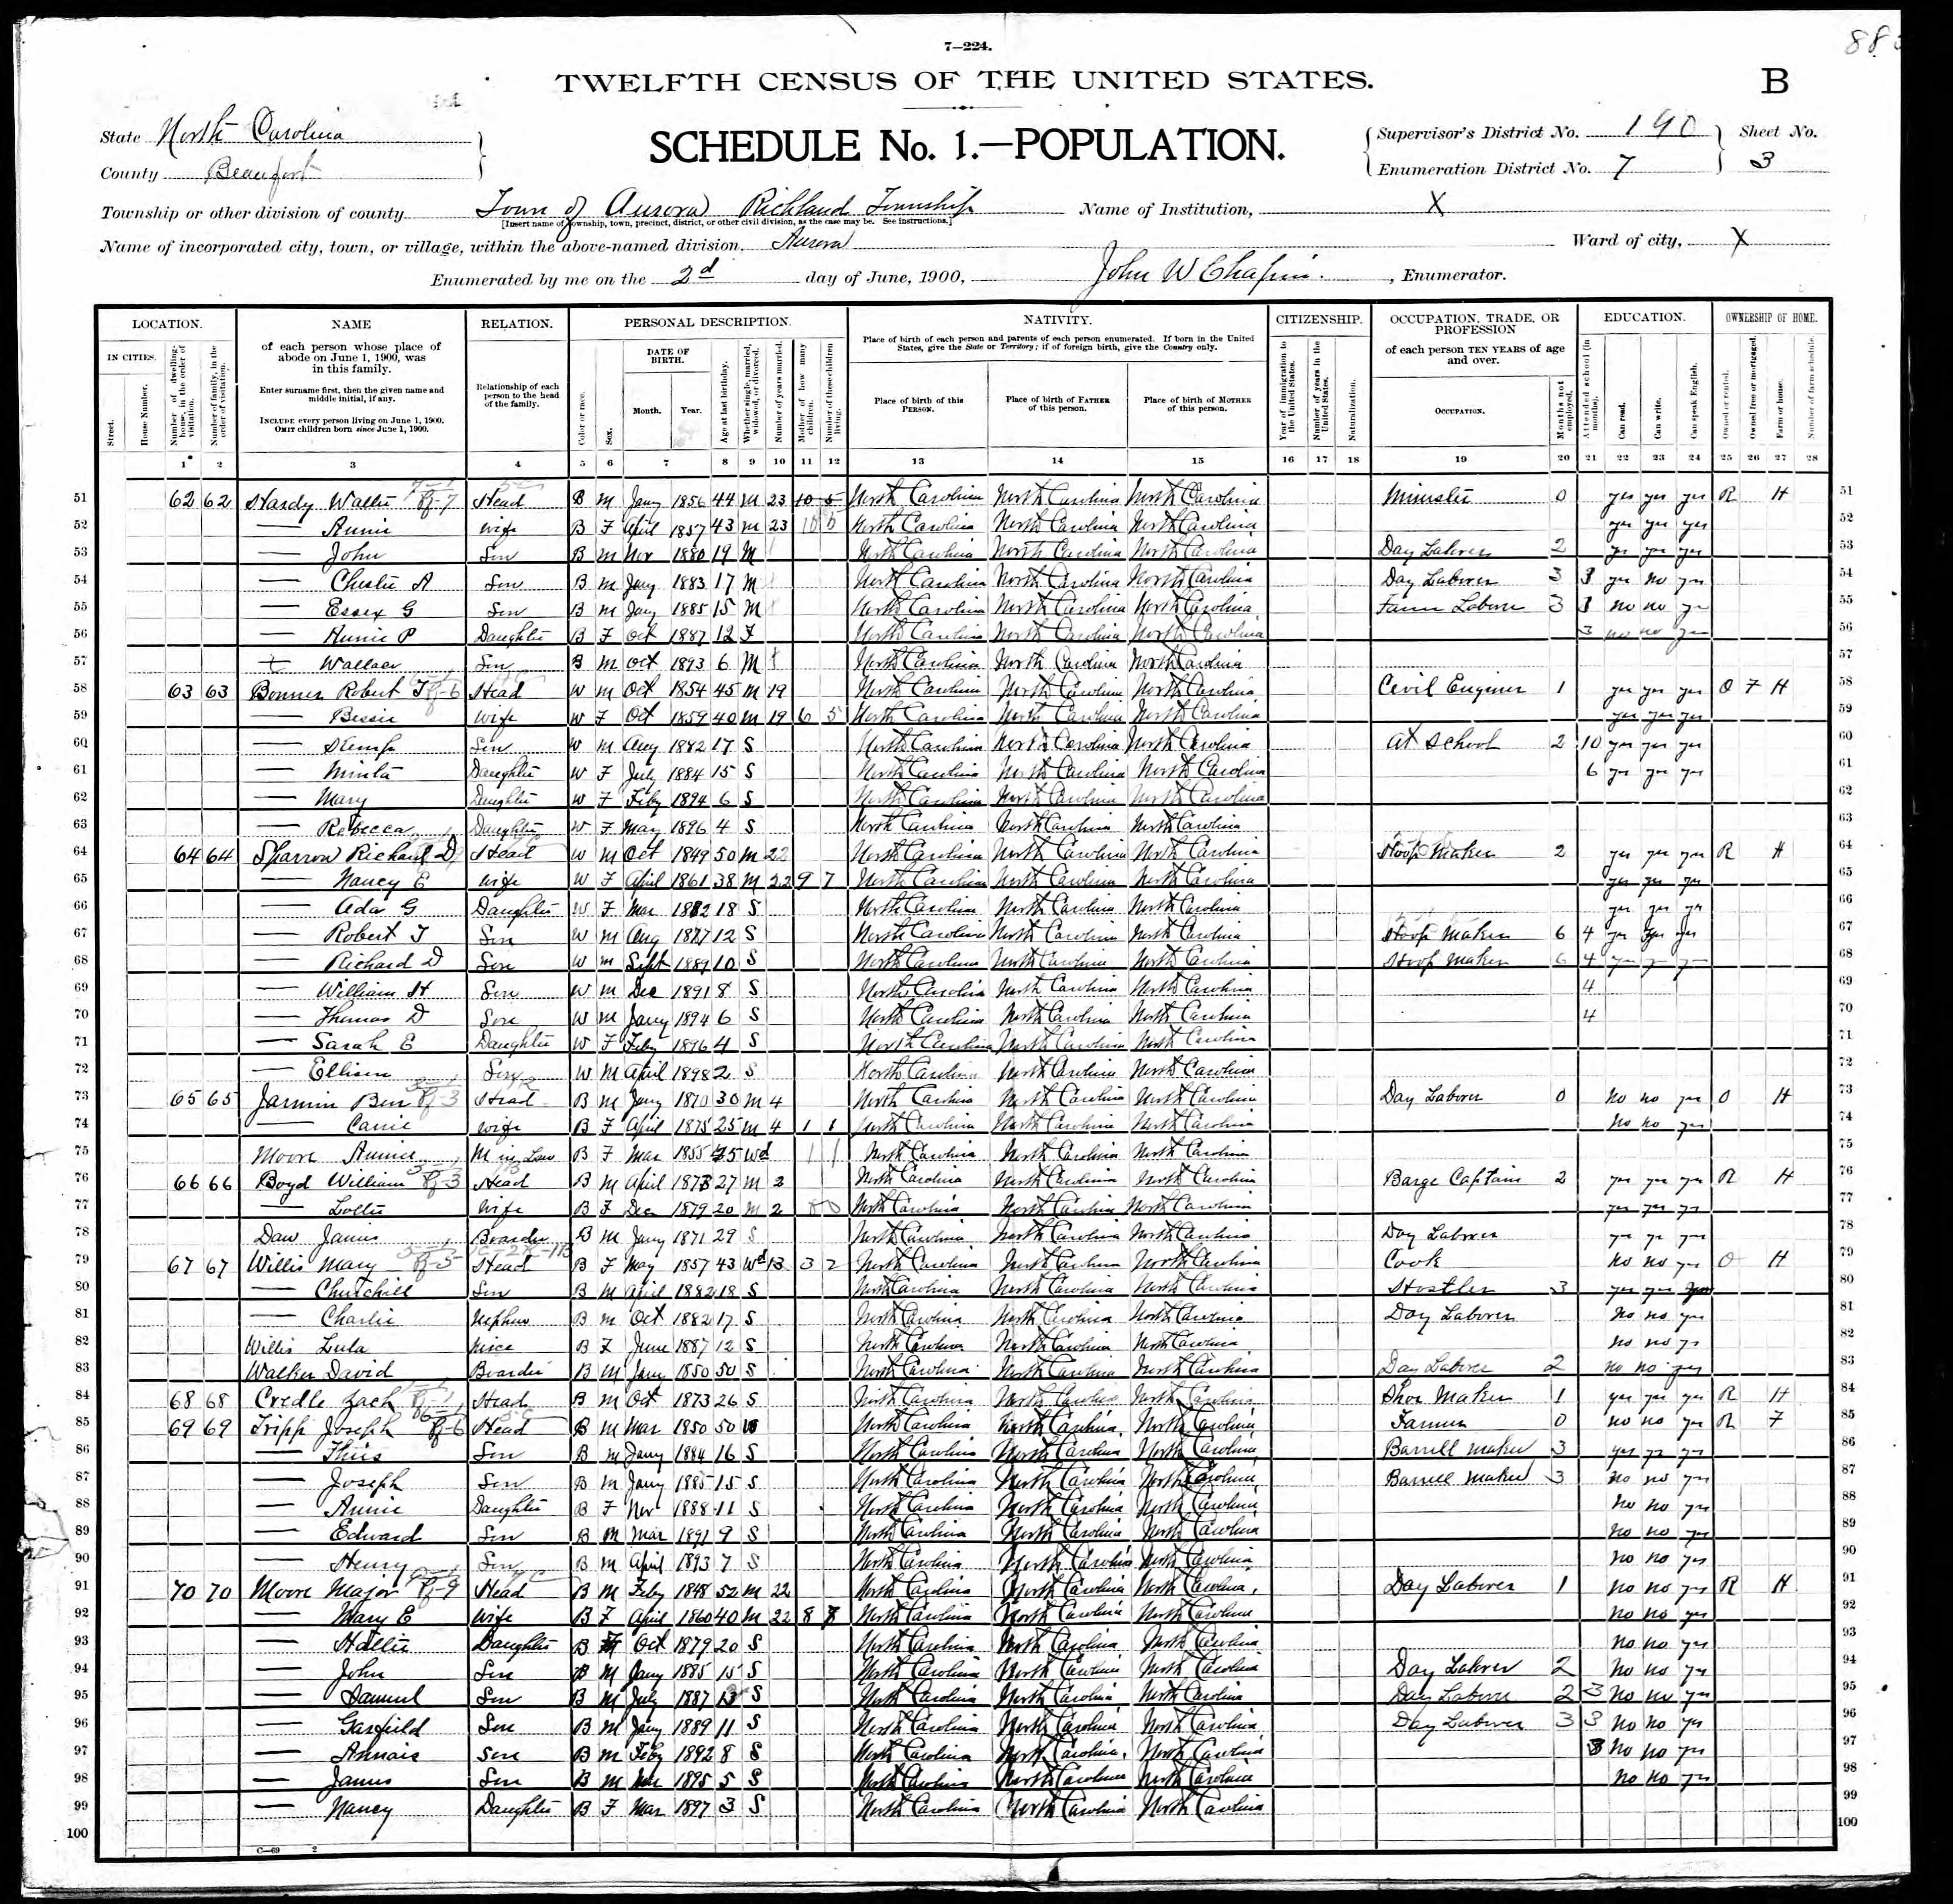 88
7—224.
TWELFTH CENSUS OF THE UNITED STATES.
B
State North Carolina
County Beaufort
SCHEDULE No. 1.—POPULATION.
Supervisor's District No. 190
Enumeration District No. 7
Sheet No. 3
Township or other division of county Town of Aurora Richland Township Name of Institution, X
[Insert name of township, town, precinct, district, or other civil division, as the case may be. See instructions.]
Name of incorporated city, town, or village, within the above-named division, Aurora Ward of city, X
Enumerated by me on the 2d day of June, 1900, John W Chapin. , Enumerator.
LOCATION. NAME RELATION. PERSONAL DESCRIPTION. NATIVITY. CITIZENSHIP. OCCUPATION, TRADE, OR PROFESSION EDUCATION. OWNERSHIP OF HOME.
IN CITIES. Street. House Number. Number of dwelling-house, in the order of visitation. Number of family, in the order of visitation.
of each person whose place of abode on June 1, 1900, was in this family.
Enter surname first, then the given name and middle initial, if any.
INCLUDE every person living on June 1, 1900. OMIT children born since June 1, 1900.
Relationship of each person to the head of the family.
Color or race. Sex. DATE OF BIRTH. Month. Year. Age at last birthday. Whether single, married, widowed, or divorced. Number of years married. Mother of how many children. Number of these children living.
Place of birth of each person and parents of each person enumerated. If born in the United States, give the State or Territory; if of foreign birth, give the Country only.
Place of birth of this PERSON. Place of birth of FATHER of this person. Place of birth of MOTHER of this person.
Year of immigration to the United States. Number of years in the United States. Naturalization.
of each person TEN YEARS of age and over.
OCCUPATION. Months not employed. Attended school (in months). Can read. Can write. Can speak English. Owned or rented. Owned free or mortgaged. Farm or house. Number of farm schedule.
1 2 3 4 5 6 7 8 9 10 11 12 13 14 15 16 17 18 19 20 21 22 23 24 25 26 27 28
51 62 62 Hardy Walter Head B M Jany 1856 44 M 23 10 5 North Carolina North Carolina North Carolina Minister 0 yes yes yes R H 51
52 — Annie Wife B F April 1857 43 M 23 10 North Carolina North Carolina North Carolina yes yes yes 52
53 — John Son B M Nov 1880 19 M North Carolina North Carolina North Carolina Day Laborer 2 yes yes yes 53
54 — Chester A Son B M Jany 1883 17 M North Carolina North Carolina North Carolina Day Laborer 3 3 yes no yes 54
55 — Essex G Son B M Jany 1885 15 M North Carolina North Carolina North Carolina Farm Laborer 3 no no yes 55
56 — Annie P Daughter B F Oct 1887 12 F North Carolina North Carolina North Carolina 3 no no yes 56
57 — Wallace Son B M Oct 1893 6 M North Carolina North Carolina North Carolina 57
58 63 63 Bonner Robert T Head W M Oct 1854 45 M 19 North Carolina North Carolina North Carolina Civil Enginer 1 yes yes yes O F H 58
59 — Bessie Wife W F Oct 1859 40 M 19 6 5 North Carolina North Carolina North Carolina yes yes yes 59
60 — Son W M Aug 1882 17 S North Carolina North Carolina North Carolina At School 2 10 yes yes yes 60
61 — Minta Daughter W F July 1884 15 S North Carolina North Carolina North Carolina 6 yes yes yes 61
62 — Mary Daughter W F Feby 1894 6 S North Carolina North Carolina North Carolina 62
63 — Rebecca Daughter W F May 1896 4 S North Carolina North Carolina North Carolina 63
64 64 64 Sparrow Richard D Head W M Oct 1849 50 M 22 North Carolina North Carolina North Carolina Hoop Maker 2 yes yes yes R H 64
65 — Nancy E Wife W F April 1861 38 M 22 9 7 North Carolina North Carolina North Carolina yes yes yes 65
66 — Ada G Daughter W F Mar 1882 18 S North Carolina North Carolina North Carolina yes yes yes 66
67 — Robert T Son W M Aug 1887 12 S North Carolina North Carolina North Carolina Hoop Maker 6 4 yes yes yes 67
68 — Richard D Son W M Sept 1889 10 S North Carolina North Carolina North Carolina Hoop Maker 6 4 yes 68
69 — William H Son W M Dec 1891 8 S North Carolina North Carolina North Carolina 4 69
70 — Thomas D Son W M Jany 1894 6 S North Carolina North Carolina North Carolina 4 70
71 — Sarah E Daughter W F Feby 1896 4 S North Carolina North Carolina North Carolina 71
72 — Ellison Son W M April 1898 2 S North Carolina North Carolina North Carolina 72
73 65 65 Jarmin Ben Head B M Jany 1870 30 M 4 North Carolina North Carolina North Carolina Day Laborer 0 no no yes O H 73
74 — Carrie Wife B F April 1875 25 M 4 1 1 North Carolina North Carolina North Carolina no no yes 74
75 Moore Annie M in Law B F Mar 1855 45 Wd 1 1 North Carolina North Carolina North Carolina 75
76 66 66 Boyd William Head B M April 1873 27 M 2 North Carolina North Carolina North Carolina Barge Captain 2 yes yes yes R H 76
77 — Lottie Wife B F Dec 1879 20 M 2 0 0 North Carolina North Carolina North Carolina yes yes yes 77
78 Daw James Boarder B M Jany 1871 29 S North Carolina North Carolina North Carolina Day Laborer yes yes yes 78
79 67 67 Willis Mary Head B F May 1857 43 Wd 13 3 2 North Carolina North Carolina North Carolina Cook no no yes O H 79
80 — Churchill Son B M April 1882 18 S North Carolina North Carolina North Carolina Hostler 3 yes yes yes 80
81 — Charlie Nephew B M Oct 1882 17 S North Carolina North Carolina North Carolina Day Laborer no no yes 81
82 Willis Lula Niece B F June 1887 12 S North Carolina North Carolina North Carolina no no yes 82
83 Walker David Boarder B M Jany 1850 50 S North Carolina North Carolina North Carolina Day Laborer 2 no no yes 83
84 68 68 Credle Zach Head B M Oct 1873 26 S North Carolina North Carolina North Carolina Shoe Maker 1 yes yes yes R H 84
85 69 69 Tripp Joseph Head B M Mar 1850 50 North Carolina North Carolina North Carolina Farmer 0 no no yes R F 85
86 — Son B M Jany 1884 16 S North Carolina North Carolina North Carolina Barrell Maker 3 yes yes yes 86
87 — Joseph Son B M Jany 1885 15 S North Carolina North Carolina North Carolina Barrell Maker 3 no no yes 87
88 — Annie Daughter B F Nov 1888 11 S North Carolina North Carolina North Carolina no no yes 88
89 — Edward Son B M Mar 1891 9 S North Carolina North Carolina North Carolina no no yes 89
90 — Henry Son B M April 1893 7 S North Carolina North Carolina North Carolina no no yes 90
91 70 70 Moore Major Head B M Feby 1848 52 M 22 North Carolina North Carolina North Carolina Day Laborer 1 no no yes R H 91
92 — Mary E Wife B F April 1860 40 M 22 8 North Carolina North Carolina North Carolina no no yes 92
93 — Hattie Daughter B F Oct 1879 20 S North Carolina North Carolina North Carolina no no yes 93
94 — John Son B M Jany 1885 15 S North Carolina North Carolina North Carolina Day Laborer 2 no no yes 94
95 — Samuel Son B M July 1887 S North Carolina North Carolina North Carolina Day Laborer 2 3 no no yes 95
96 — Garfield Son B M Jany 1889 11 S North Carolina North Carolina North Carolina Day Laborer 3 3 no no yes 96
97 — Son B M Feby 1892 8 S North Carolina North Carolina North Carolina 3 no no yes 97
98 — James Son B M 1895 5 S North Carolina North Carolina North Carolina no no yes 98
99 — Nancy Daughter B F Mar 1897 3 S North Carolina North Carolina North Carolina 99
100 100
C—69 2